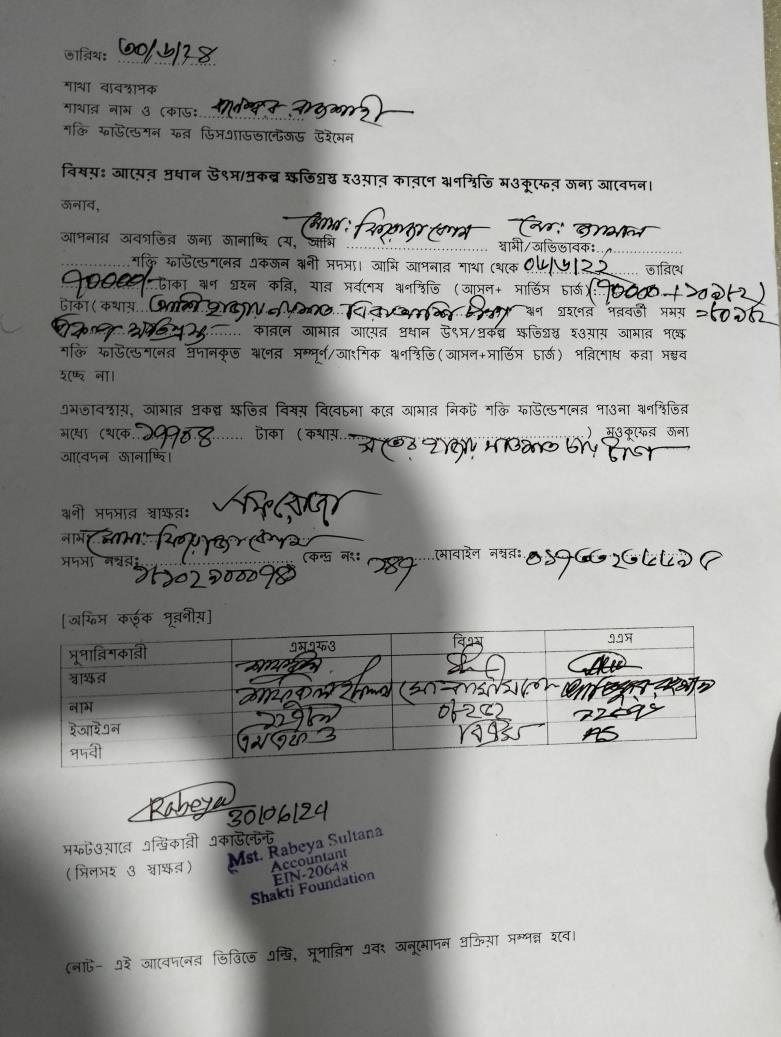 তারিখঃ ৩০/৬/২৪
শাখা ব্যবস্থাপক
শাখার নাম ও কোড: বানেশ্বর রাজশাহী
শক্তি ফাউন্ডেশন ফর ডিসএ্যাডভান্টেজড উইমেন
বিষয়ঃ আয়ের প্রধান উৎস/প্রকল্প ক্ষতিগ্রস্থ হওয়ার কারণে ঋণস্থিতি মওকুফের জন্য আবেদন।
জনাব,
আপনার অবগতির জন্য জানাচ্ছি যে, আমি মোসা: ফিরোজা বেগম স্বামী/অভিভাবক: মো:
শক্তি ফাউন্ডেশনের একজন ঋণী সদস্য। আমি আপনার শাখা থেকে ০৬/৬/২২ তারিখে
৭০০০০/- টাকা ঋণ গ্রহন করি, যার সর্বশেষ ঋণস্থিতি (আসল+ সার্ভিস চার্জ) (৭০০০০+১০৯৮২)
টাকা (কথায় আশি হাজার নয়শত বিরাআশি টাকা ঋণ গ্রহণের পরবর্তী সময় =৮০৯৮২
ক্ষতিগ্রস্থ কারনে আমার আয়ের প্রধান উৎস/প্রকল্প ক্ষতিগ্রস্থ হওয়ায় আমার পক্ষে
শক্তি ফাউন্ডেশনের প্রদানকৃত ঋণের সম্পূর্ণ/আংশিক ঋণস্থিতি (আসল+সার্ভিস চার্জ) পরিশোধ করা সম্ভব
হচ্ছে না।
এমতাবস্থায়, আমার প্রকল্প ক্ষতির বিষয় বিবেচনা করে আমার নিকট শক্তি ফাউন্ডেশনের পাওনা ঋণস্থিতির
মধ্যে থেকে ১৭৭০৪ টাকা (কথায় সতের হাজার সাতশত চার টাকা) মওকুফের জন্য
আবেদন জানাচ্ছি।
ঋণী সদস্যের স্বাক্ষর: ফিরোজা
নাম: মোসা: ফিরোজা বেগম
সদস্য নম্বর: কেন্দ্র নং: মোবাইল নম্বর:
[অফিস কর্তৃক পূরণীয়]
সুপারিশকারী এমএফও বিএম এএস
স্বাক্ষর
নাম
ইআইএন
পদবী এমএফও বিএম AS
Rabeya
30/06/24
সফটওয়ারে এন্ট্রিকারী একাউন্টেন্ট
(সিলসহ ও স্বাক্ষর)
Mst. Rabeya Sultana
Accountant
EIN-20648
Shakti Foundation
নোট- এই আবেদনের ভিত্তিতে এন্ট্রি, সুপারিশ এবং অনুমোদন প্রক্রিয়া সম্পন্ন হবে।